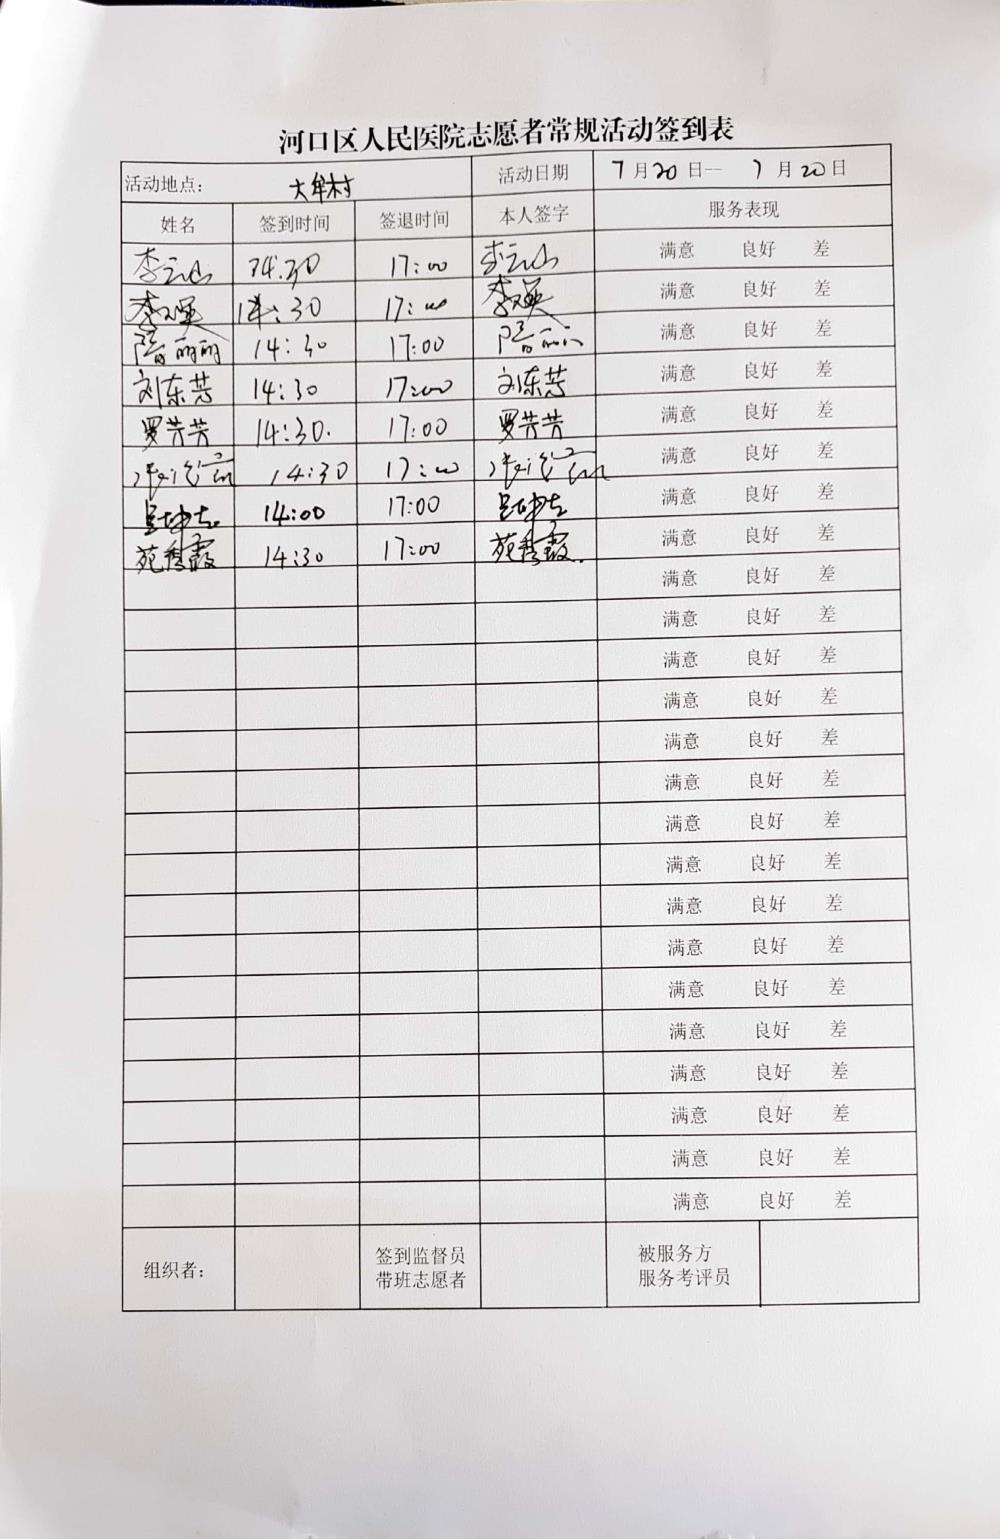 河口区人民医院志愿者常规活动签到表
活动地点: 大牟村 活动日期 7月20日-- 7月20日
姓名 签到时间 签退时间 本人签字 服务表现
李云山 14:30 17:00 李云山 满意 良好 差
李英 14:30 17:00 李英 满意 良好 差
隋丽丽 14:30 17:00 隋丽丽 满意 良好 差
刘东芳 14:30 17:00 刘东芳 满意 良好 差
罗芳芳 14:30. 17:00 罗芳芳 满意 良好 差
14:30 17:00 满意 良好 差
14:00 17:00 满意 良好 差
苑秀霞 14:30 17:00 苑秀霞. 满意 良好 差
满意 良好 差
满意 良好 差
满意 良好 差
满意 良好 差
满意 良好 差
满意 良好 差
满意 良好 差
满意 良好 差
满意 良好 差
满意 良好 差
满意 良好 差
满意 良好 差
满意 良好 差
满意 良好 差
满意 良好 差
满意 良好 差
组织者: 签到监督员 被服务方
带班志愿者 服务考评员